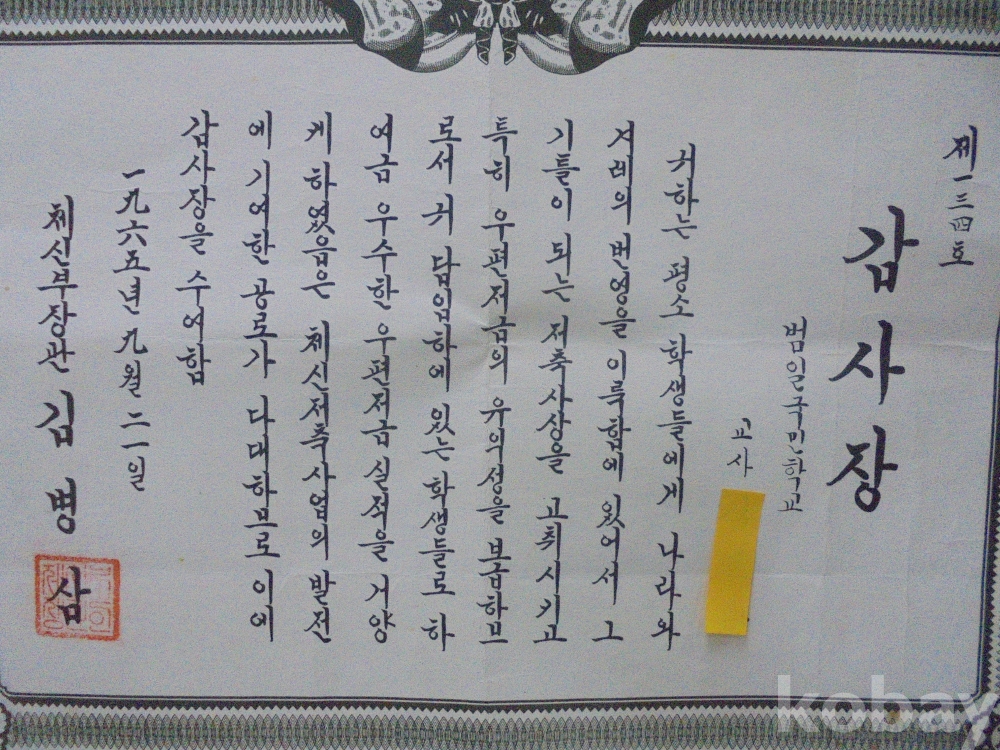 제一三四호
감사장
범일국민학교
교사
귀하는 평소 학생들에게 나라와
겨레의 번영을 이룩함에 있어서 그
기틀이 되는 저축사상을 고취시키고
특히 우편저금의 유의성을 보급하므
로서 귀 담임하에 있는 학생들로 하
여금 우수한 우편저금 실적을 거양
케 하였음은 체신저축사업의 발전
에 기여한 공로가 다대하므로 이에
감사장을 수여함
一九六五년 九월 二一일
체신부장관 김병삼
kobay